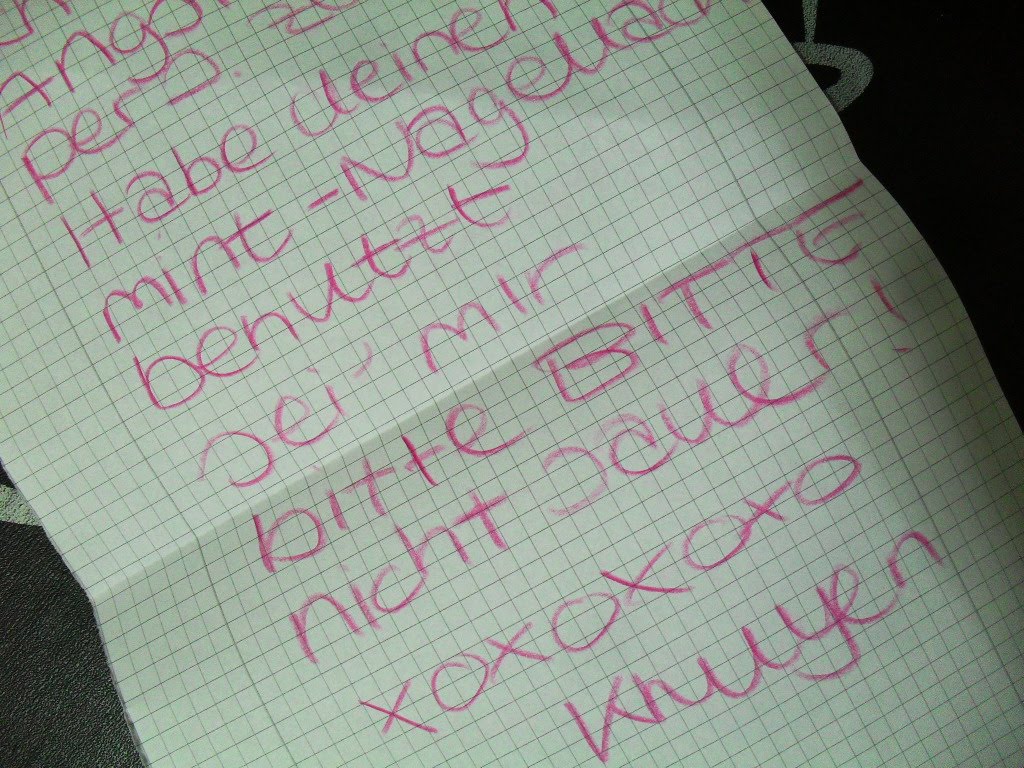 per D.
Habe deinen
mint-Nagellack
benutzt
Sei mir
bitte BITTE
nicht sauer!
xoxoxoxo
Knuyen